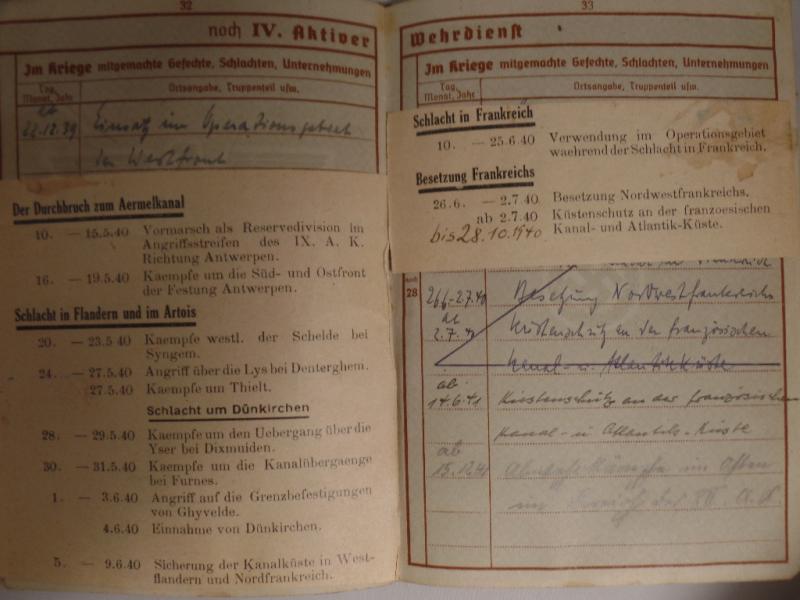 32
noch IV. Aktiver
Im Kriege mitgemachte Gefechte, Schlachten, Unternehmungen
Tag, Monat, Jahr
Ortsangabe, Truppenteil usw.
ab
22.12.39 Einsatz im Operationsgebiet
der Westfront
Der Durchbruch zum Aermelkanal
10. — 15.5.40 Vormarsch als Reservedivision im
Angriffsstreifen des IX. A. K.
Richtung Antwerpen.
16. — 19.5.40 Kaempfe um die Süd- und Ostfront
der Festung Antwerpen.
Schlacht in Flandern und im Artois
20. — 23.5.40 Kaempfe westl. der Schelde bei
Syngem.
24. — 27.5.40 Angriff über die Lys bei Denterghem.
27.5.40 Kaempfe um Thielt.
Schlacht um Dünkirchen
28. — 29.5.40 Kaempfe um den Uebergang über die
Yser bei Dixmuiden.
30. — 31.5.40 Kaempfe um die Kanalübergaenge
bei Furnes.
1. — 3.6.40 Angriff auf die Grenzbefestigungen
von Ghyvelde.
4.6.40 Einnahme von Dünkirchen.
5. — 9.6.40 Sicherung der Kanalküste in West-
flandern und Nordfrankreich.
33
Wehrdienst
Im Kriege mitgemachte Gefechte, Schlachten, Unternehmungen
Tag, Monat, Jahr
Ortsangabe, Truppenteil usw.
Schlacht in Frankreich
10. — 25.6.40 Verwendung im Operationsgebiet
waehrend der Schlacht in Frankreich.
Besetzung Frankreichs
26.6. — 2.7.40 Besetzung Nordwestfrankreichs.
ab 2.7.40 Küstenschutz an der franzoesischen
bis 28.10.1940 Kanal- und Atlantik-Küste.
noch
28
26.6.-2.7.40 Besetzung Nordwestfrankreichs
ab
2.7.40 Küstenschutz an der französischen
Kanal- u. Atlantikküste
ab
14.6.41 Küstenschutz an der französischen
Kanal- u Atlantik-Küste
ab
15.12.41 Abwehrkämpfe im Osten
im Bereich des A.K.